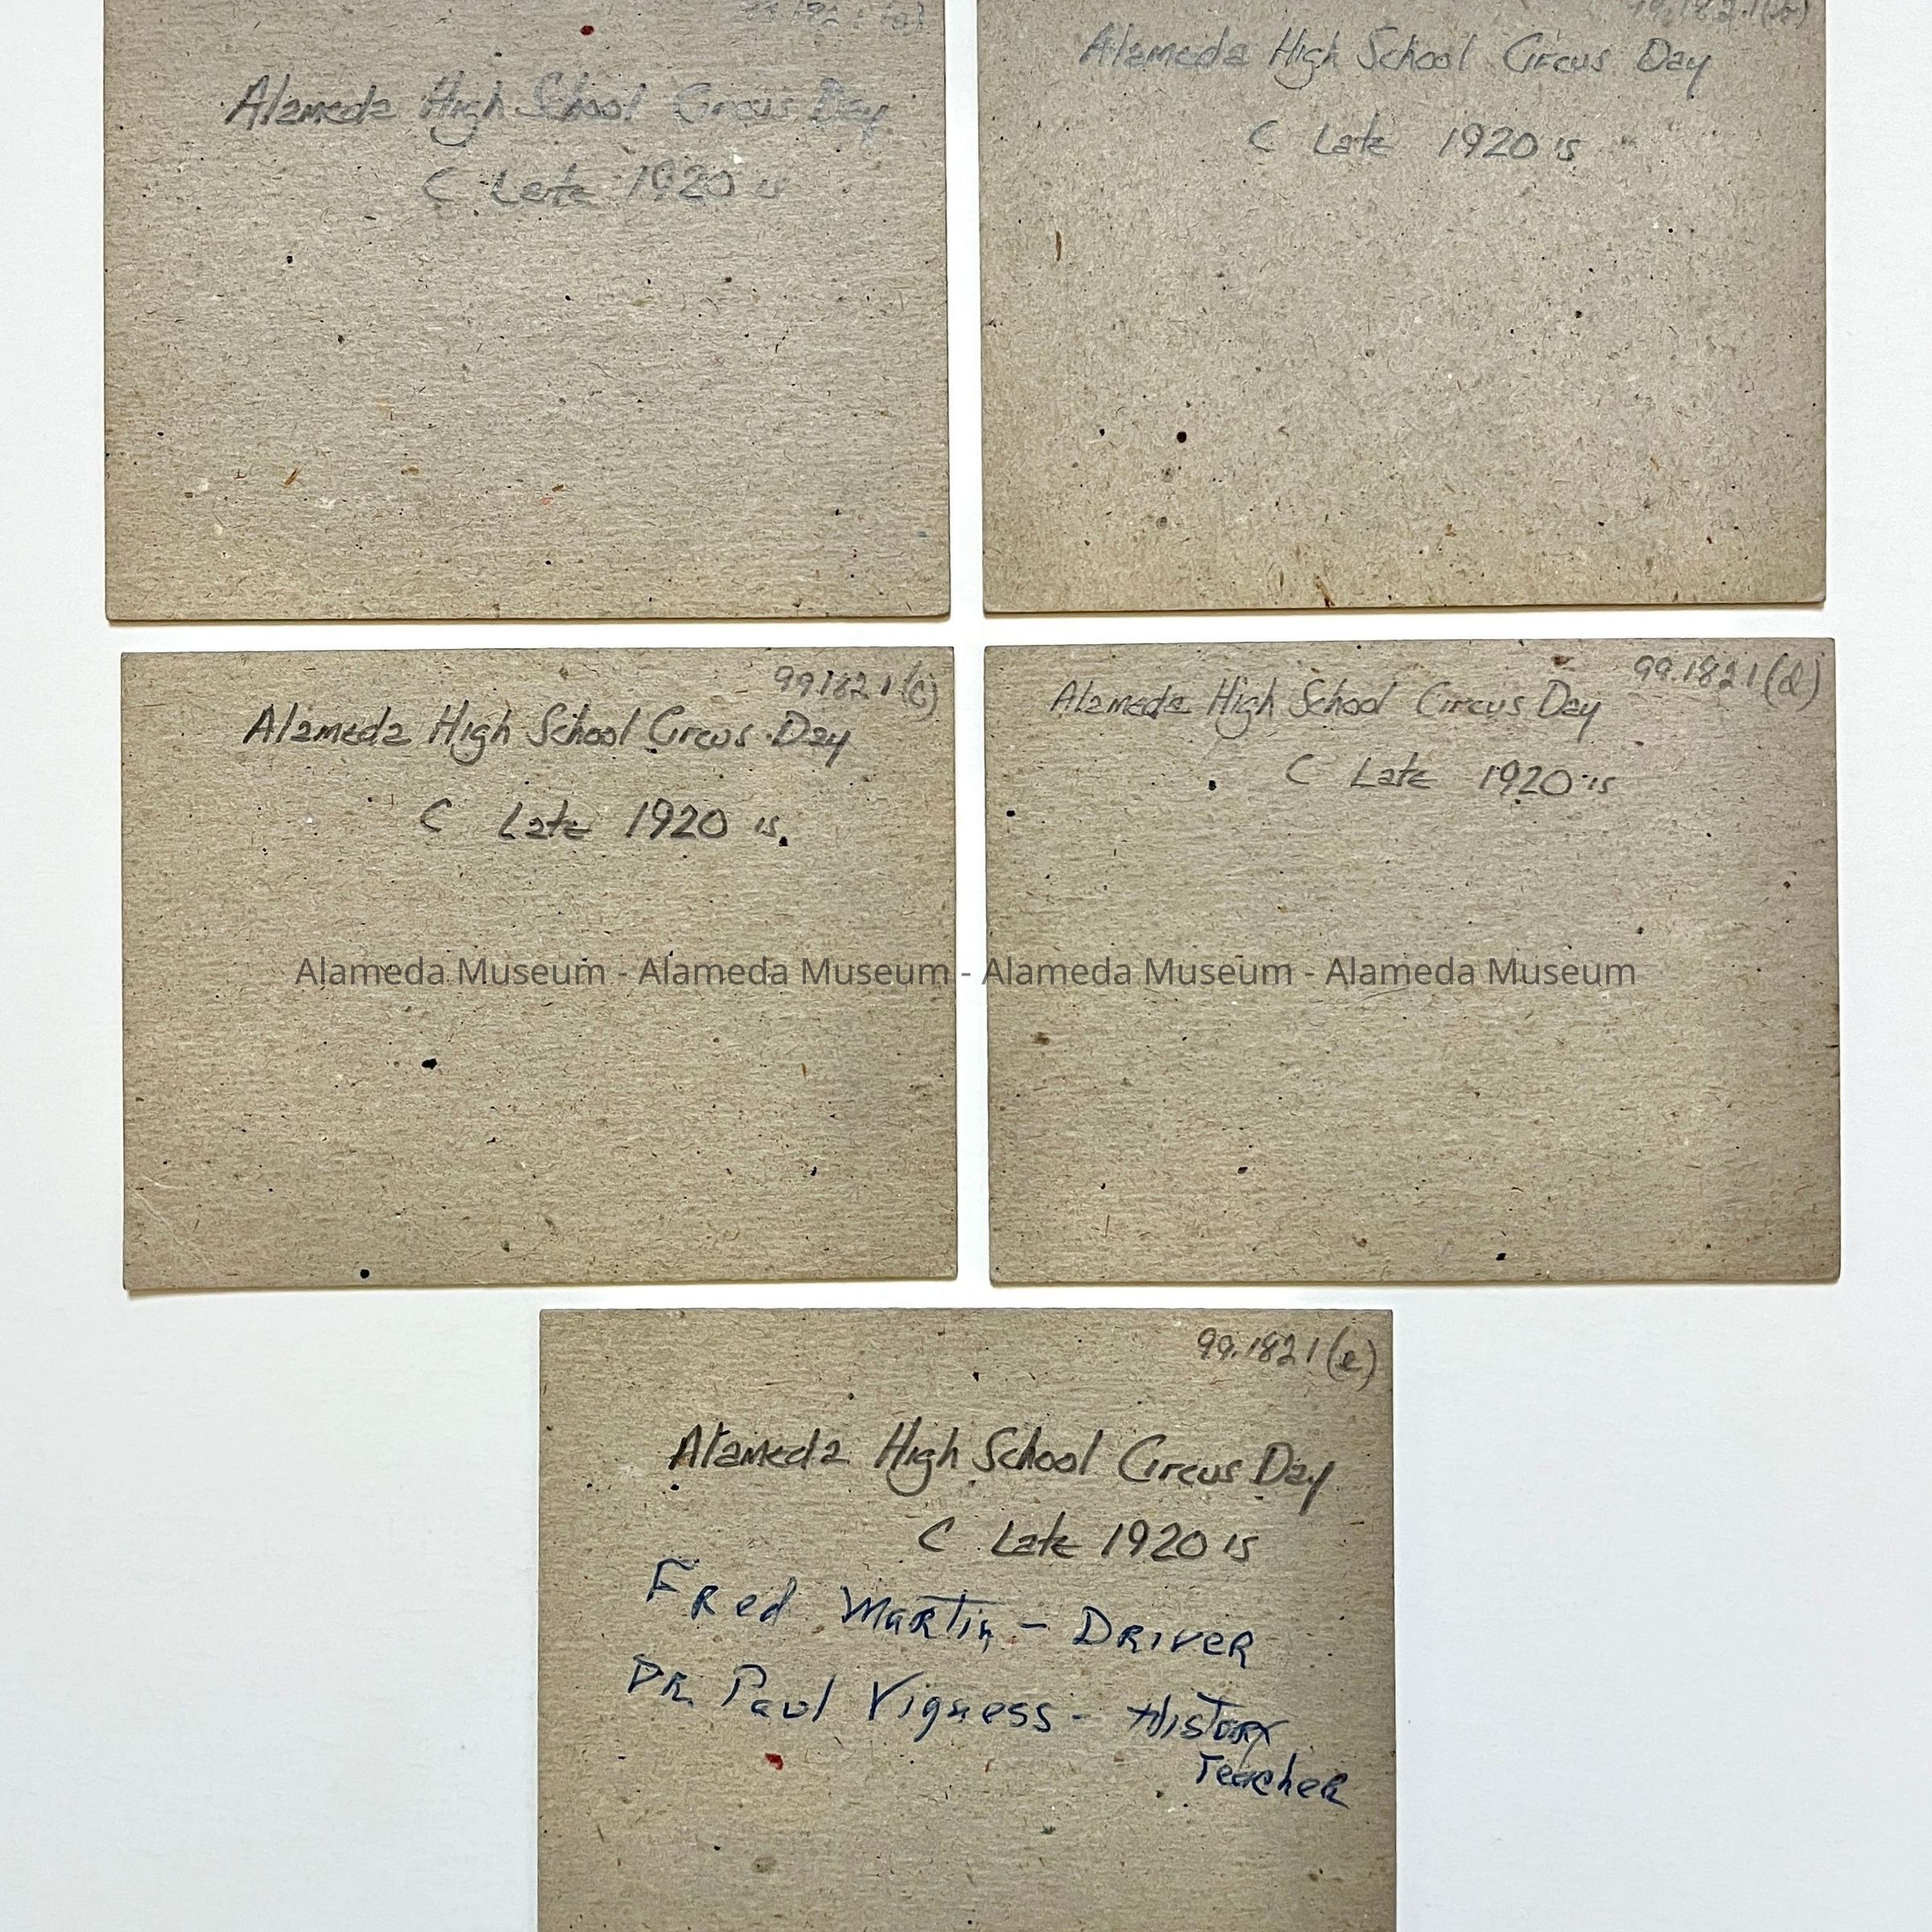 99.182.1(a)
Alameda High School Circus Day
C Late 1920's
99.182.1(b)
Alameda High School Circus Day
C Late 1920's
99.182.1(c)
Alameda High School Circus Day
C Late 1920's
99.182.1(d)
Alameda High School Circus Day
C Late 1920's
Alameda Museum - Alameda Museum - Alameda Museum - Alameda Museum
99.182.1(e)
Alameda High School Circus Day
C Late 1920's
Fred Martin - Driver
Dr. Paul Vigness - History
Teacher